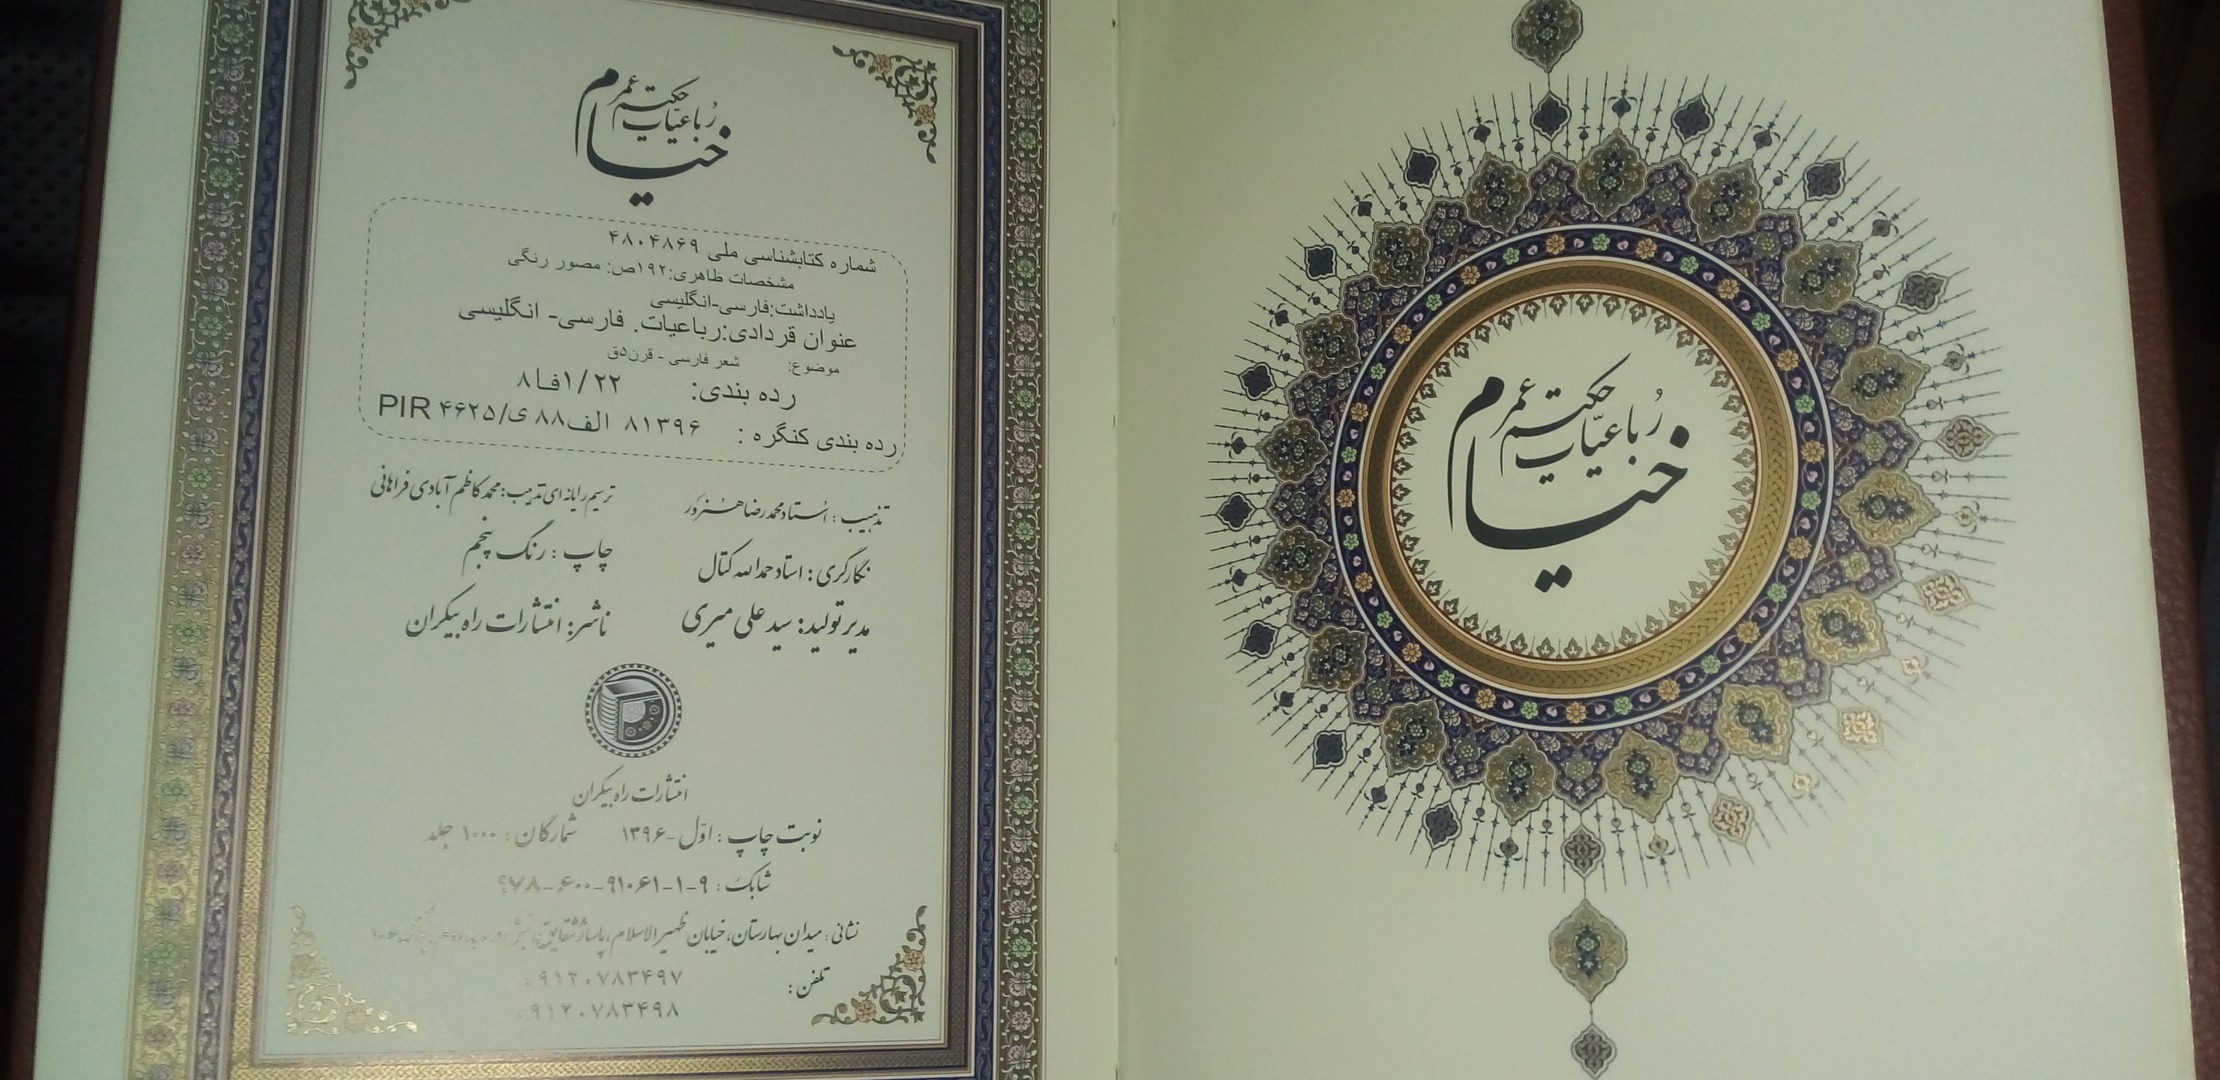 رُباعیّات حکیم عمر خیام
شماره کتابشناسی ملی ۴۸۰۴۸۶۹
مشخصات ظاهری:۱۹۲ص: مصور رنگی
یادداشت:فارسی-انگلیسی
عنوان قردادی:رباعیات. فارسی- انگلیسی
موضوع: شعر فارسی - قرن۵ق
رده بندی: ۱/۲۲فا۸
رده بندی کنگره : ۸۱۳۹۶ الف۸۸ی/۴۶۲۵ PIR
تذهیب : اُستاد محمدرضا هنرور
ترسیم رایانه ای تذهیب: محمدکاظم آبادی فراهانی
نگارگری : استاد حمدالله کتال
چاپ : رنگ پنجم
مدیر تولید: سید علی میری
ناشر: انتشارات راه بیکران
انتشارات راه بیکران
نوبت چاپ : اوّل-۱۳۹۶ شمارگان : ۱۰۰۰ جلد
شابک : ۹-۱-۹۱۰۶۱-۶۰۰-۹۷۸
نشانی : میدان بهارستان، خیابان ظهیرالاسلام، پاساژ شقایق،
تلفن : ۰۹۱۲۰۷۸۳۴۹۷
۰۹۱۲۰۷۸۳۴۹۸
رُباعیّات حکیم عمر خیام